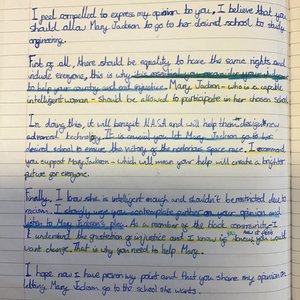 I feel compelled to express my opinion to you, I believe that you
should allow Mary Jackson to go to her desired school to study
engineering.
First of all, there should be equality to have the same rights and
include everyone, this is why it is
to help your country and end injustice. Mary Jackson - who is a capable
intelligent woman - should be allowed to participate in her chosen school.
In doing this, it will benefit N.A.S.A and will help them design new
advanced technology. It is crucial you let Mary Jackson go to her
desired school to ensure the victory of the notorious space race. I recommend
you support Mary Jackson - which will mean your help will create a brighter
future for everyone.
Finally, I know she is intelligent enough and shouldn't be restricted due to
racism. I strongly urge you contemplate further on your opinion and
listen to Mary Jackson's plea. As a member of the black community - I
I understand the frustration of injustice and I know if you would
want change. That is why you need to help Mary.
I hope now I have proven my point and that you share my opinion on
letting Mary Jackson go to the school she wants.